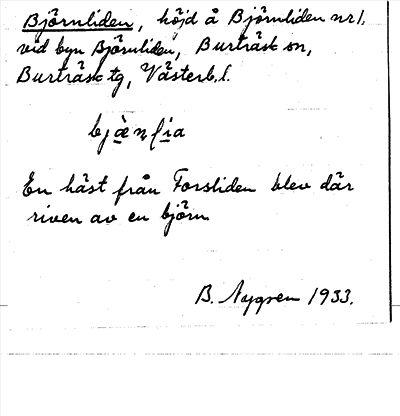 Björnliden, höjd å Björnliden nr 1,
vid byn Björnliden, Burträsk sn,
Burträsk tg, Västerb. l.
En häst från Forsliden blev där
riven av en björn
B. Nygren 1933.